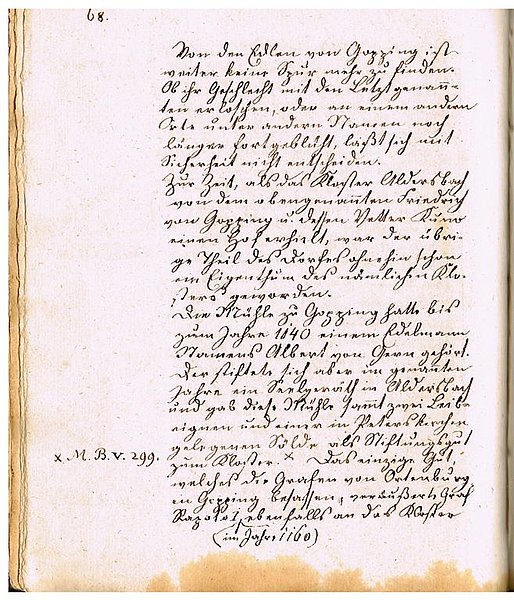 68.
Von den Edlen von Gopping ist
weiter keine Spur mehr zu finden.
Ob ihr Geschlecht mit den Letztgenan̄-
ten erloschen, oder an einem andern
Orte unter andern Namen noch
länger fortgeblüht, läßt sich mit
Sicherheit nicht entscheiden.
Zur Zeit, als das Kloster Aldersbach
von dem obengenan̄ten Friedrich
von Gopping u. dessen Vetter Kuno
einen Hof erhielt, war der übri-
ge Theil des Dorfes ohnehin schon
ein Eigenthum des nämlichen Klo-
sters geworden.
Die Mühle zu Gopping hatte bis
zum Jahre 1140 einem Edelmann
Namens Albert von Gern gehört.
Der stiftete sich aber im genan̄ten
Jahre ein Seelgeräth in Aldersbach
und gab diese Mühle sammt zwei Leib-
eignen und einer in Peterskirchen
gelegenen Sölde als Stiftungsgut
x M. B. V. 299.
zum Kloster. x Das einzige Gut
welches die Grafen von Ortenburg
in Gopping besassen, veräußerte Graf
Rapoto I, ebenfalls an das Kloster
(im Jahre 1160)